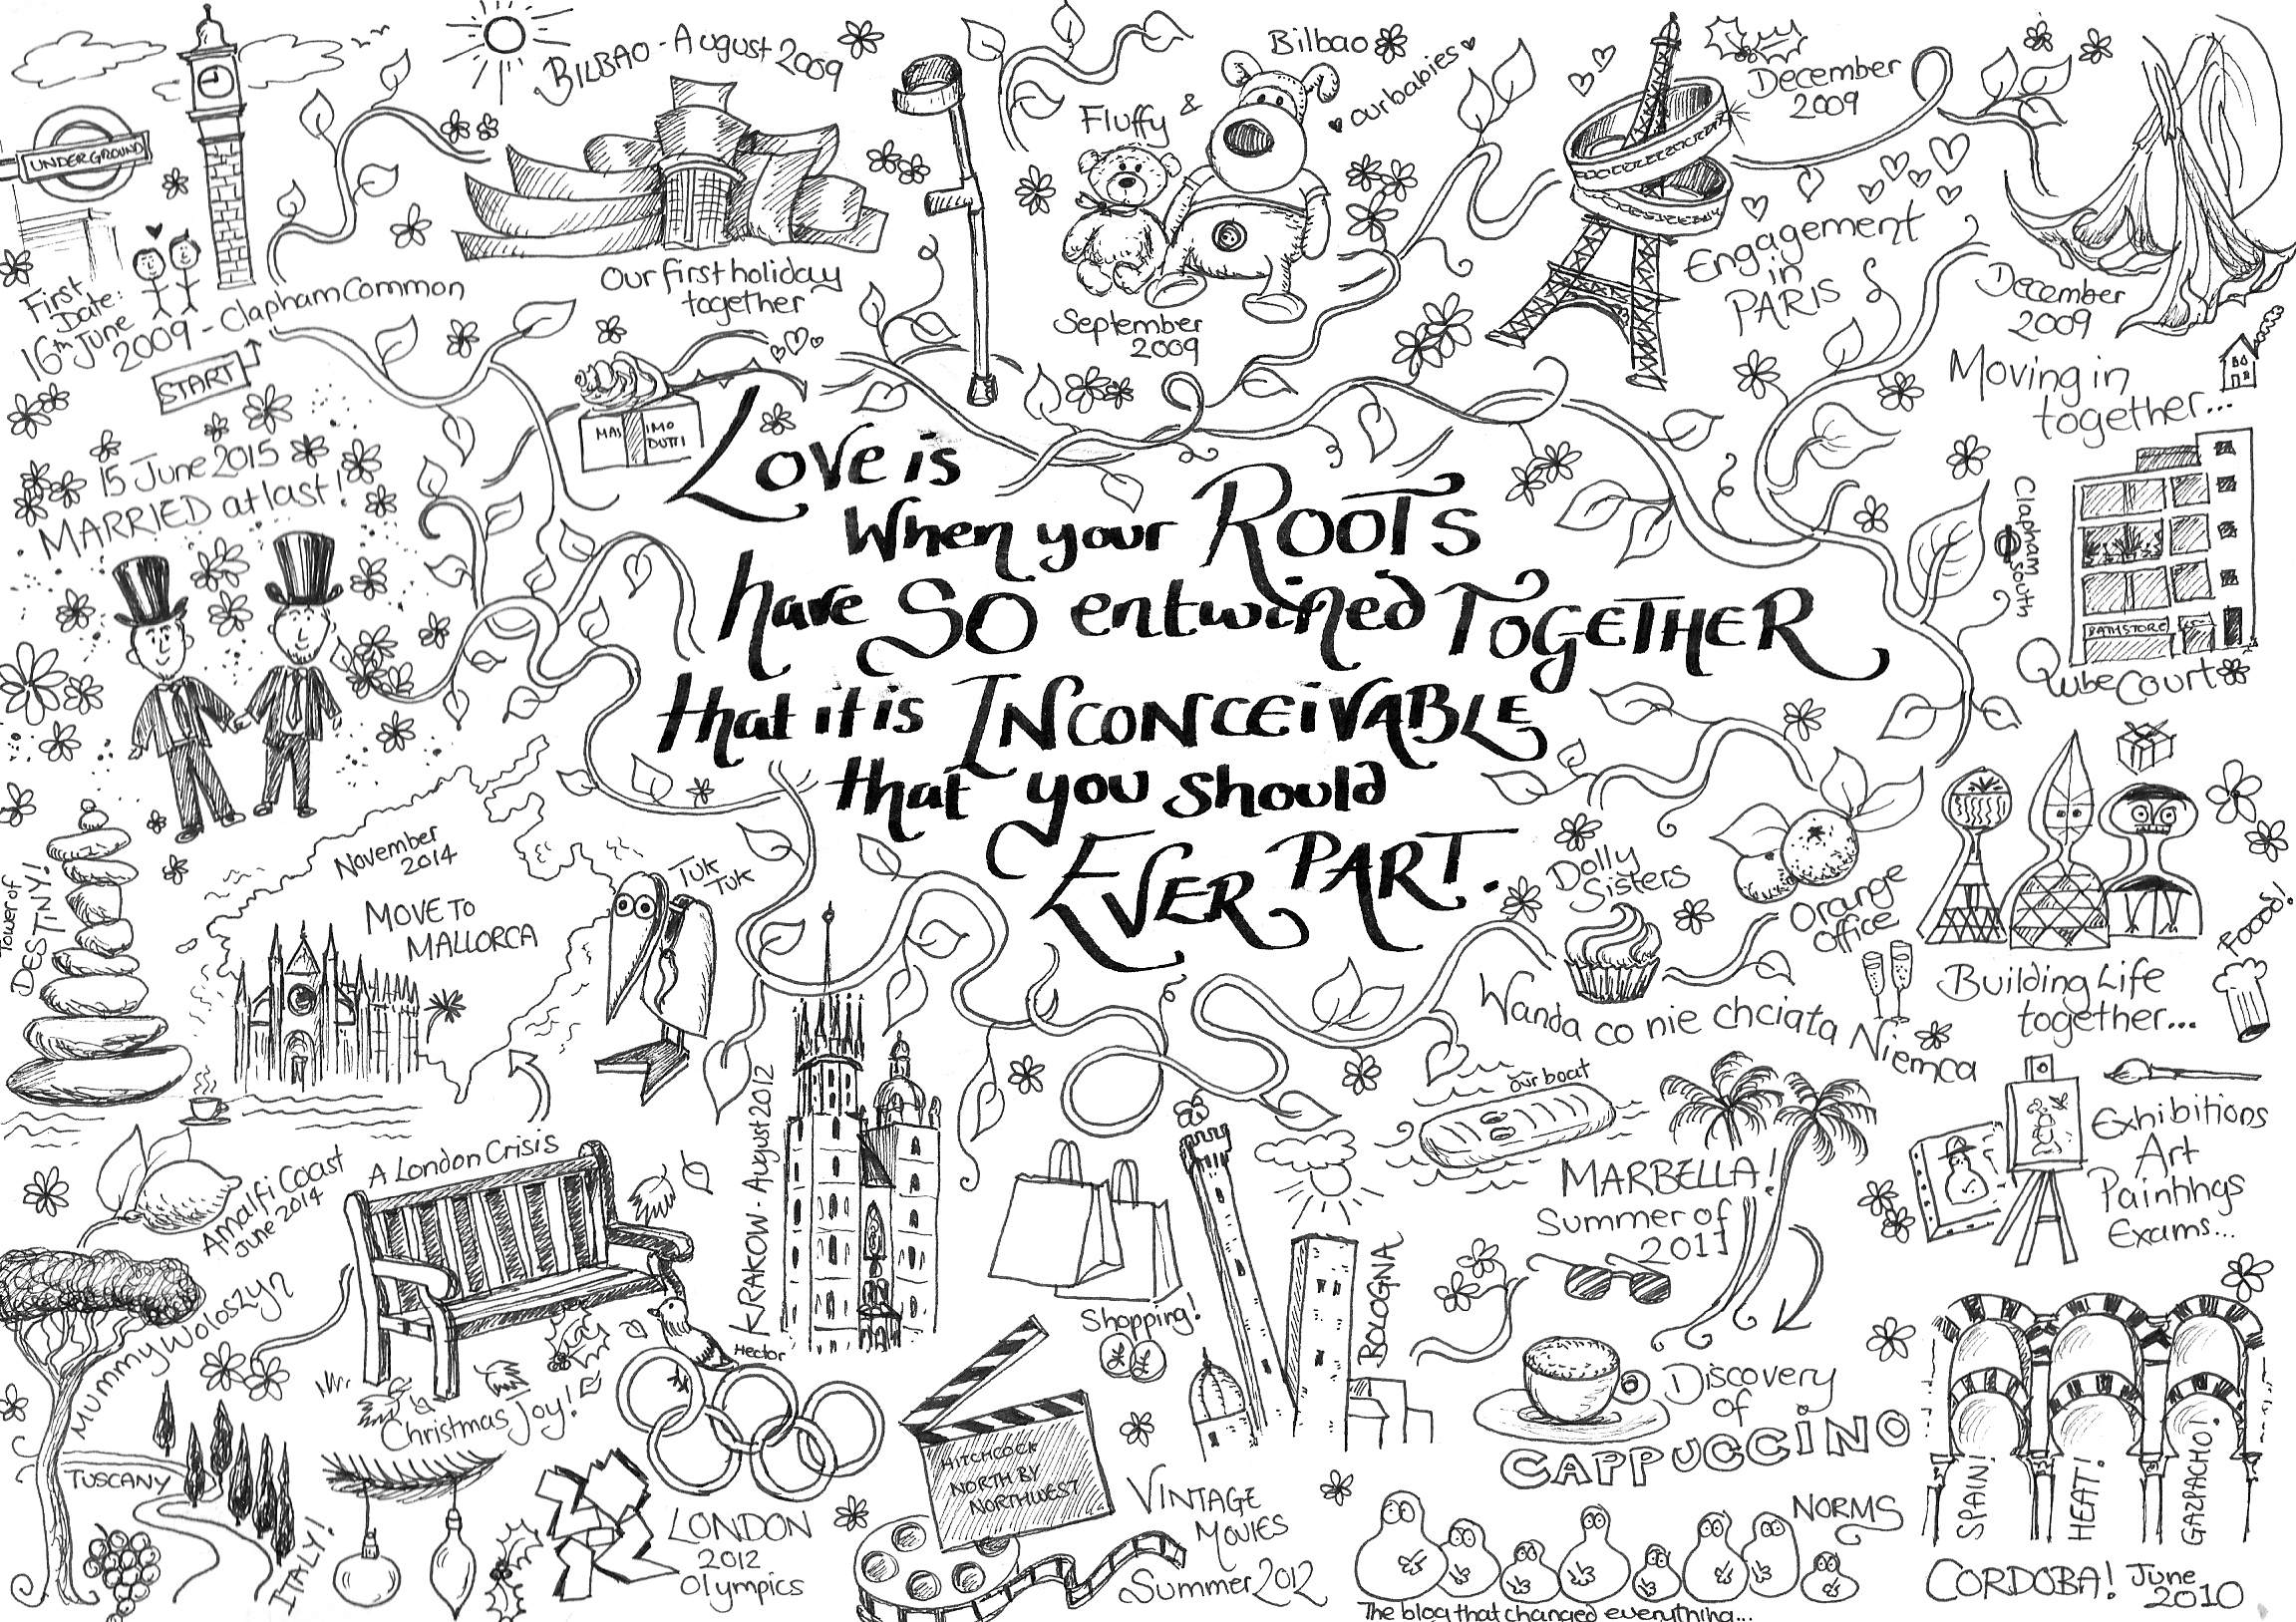 UNDERGROUND
First
Date:
16th June
2009 - Clapham Common
START
BILBAO - August 2009
Our first holiday
together
MASSIMO
DUTTI
Fluffy &
Bilbao
our babies
September
2009
December
2009
Engagement
in
PARIS
December
2009
Moving in
together...
Clapham
South
BATHSTORE
Qube Court
Love is
When your Roots
have SO entwined TOGETHER
that it is INCONCEIVABLE
that you should
EVER PART.
15 June 2015
MARRIED at last!
Tower of
DESTINY!
November
2014
MOVE TO
MALLORCA
TUK
TUK
Dolly
Sisters
Orange
Office
Wanda co nie chciała Niemca
Building Life
together...
Foood!
Exhibitions
Art
Paintings
Exams...
our boat
MARBELLA!
Summer of
2011
Discovery
of
CAPPUCCINO
NORMS
The blog that changed everything...
SPAIN!
HEAT!
GAZPACHO!
CORDOBA! June
2010
Amalfi Coast
June 2014
A London Crisis
KRAKOW - August 2012
Hector
Shopping!
BOLOGNA
Mummy Woloszyn
TUSCANY
ITALY!
Christmas Joy!
LONDON
2012
Olympics
HITCHCOCK
NORTH BY
NORTHWEST
VINTAGE
MOVIES
Summer 2012